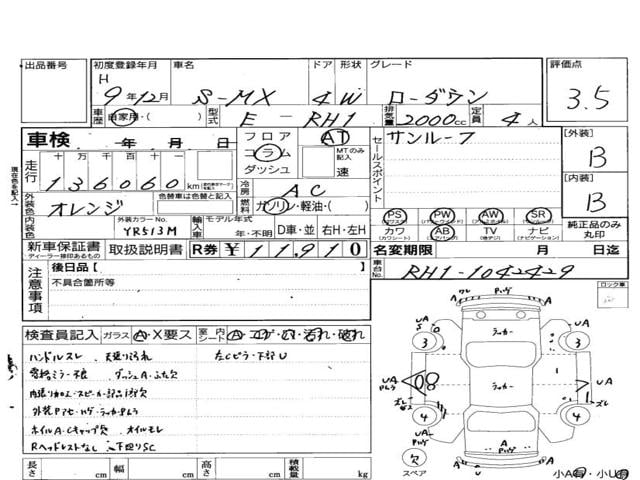 出品番号 初度登録年月 車名 ドア 形状 グレード 評価点
H 9年12月 S-MX 4 W ローダウン 3.5
車歴 自家用・( ) 型式 E - RH1 排気量 2000cc 定員 4人
車検 年 月 日 フロア コラム ダッシュ AT MTのみ記入 速 セールスポイント サンルーフ [外装] B
走行 十 万 千 百 十 136060 km
現在色を記入
外装色 オレンジ 色替車は色替と記入 冷房 AC [内装] B
燃料 ガソリン・軽油・( )
内装色 外装カラーNo. YR513M 輸入車 モデル年式 年・不明 D車・並 右H・左H
PS PW AW SR 純正品のみ丸印
カワ AB TV ナビ
新車保証書 取扱説明書 R券 ¥11,910 名変期限 月 日迄
ディーラー捺印あるもの
注意事項 後日品[ ] 車台No. RH1-1042429
不具合箇所等
ロック車
検査員記入 ガラス A・X要ス 室内シート A・コゲ・穴・汚れ・破れ
ハンドルスレ 天張り汚れ 左Cピラ・下部U
ダッシュA・ふた欠
外装Pアセ・ハゲ・ラッカーPムラ
ホイルA・Cキャップ欠 オイルモレ
Rヘッドレストなし 下廻りSC
ラッカー
ラッカー
3 3
4 4
欠
スペア
小A有・小U有
長さ cm 幅 cm 高さ cm 積載量 kg